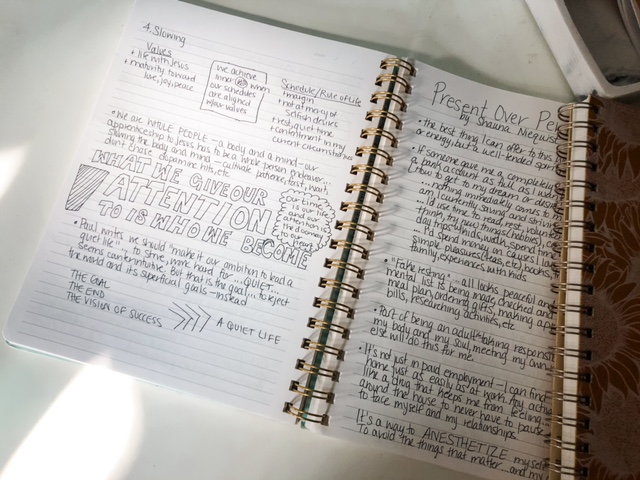 4. Slowing
Values
+ life with Jesus
+ maturity toward
love, joy, peace
we achieve
inner when
our schedules
are aligned
w/our values
Schedule/Rule of Life
+ margin
+ not at mercy of
selfish desires
+ rest, quiet time
+ contentment in my
current circumstances
• We are WHOLE PEOPLE - a body and a mind - our
apprenticeship to Jesus has to be a whole person endeavor
slowing the body and mind - cultivate patience, fast, wait,
don't chase dopamine hits, etc
WHAT WE GIVE OUR
ATTENTION
TO IS WHO WE BECOME
Our time
is our life
and our
attention is
the doorway
to our
hearts
• Paul writes we should "make it our ambition to lead a
quiet life"... to strive, work hard for... QUIET...
seems counterintuitive. But that is the goal... to reject
the world and its superficial goals - instead
THE GOAL
THE END
THE VISION OF SUCCESS
A QUIET LIFE
Present Over
by Shauna Niequist
• the best thing I can offer to this
or energy, but a well-tended
• If someone gave me a completely
a bank account as full as I
how to get to my dream or
... nothing immediately comes to
am I currently saving and
... I'd use time to rest,
think, try (new things/hobbies),
day trips w/family, w/beth, spend
... I'd spend money on causes I
simple pleasures (teas, etc), books,
family, experiences with kids
• "Fake resting"... all looks peaceful and
mental list is being made, checked and
meal plan, ordering gifts, making
bills, researching activities, etc
• Part of being an adult: taking
my body and my soul, meeting my own
else will do this for me.
• It's not just in paid employment - I can find
home just as easily as at work. Any
like a drug that keeps me from feeling...
around the house to never have to pause
to face myself and my relationships.
It's a way to ANESTHETIZE myself
To avoid the things that matter... and my